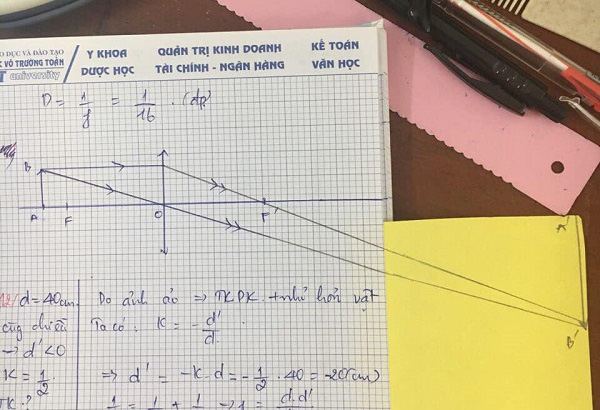 O DỤC VÀ ĐÀO TẠO
C VÕ TRƯỜNG TOẢN
T university
Y KHOA
DƯỢC HỌC
QUẢN TRỊ KINH DOANH
TÀI CHÍNH - NGÂN HÀNG
KẾ TOÁN
VĂN HỌC
D = 1/f = 1/16 . (dp)
B
A F O F' A'
B'
12/ d = 40cm.
cùng chiều
→ d' < 0
K = 1/2
TK ?
Do ảnh ảo => TKPK. + nhỏ hơn vật
Ta có: K = - d'/d
=> d' = -K.d = - 1/2 . 40 = -20(cm)